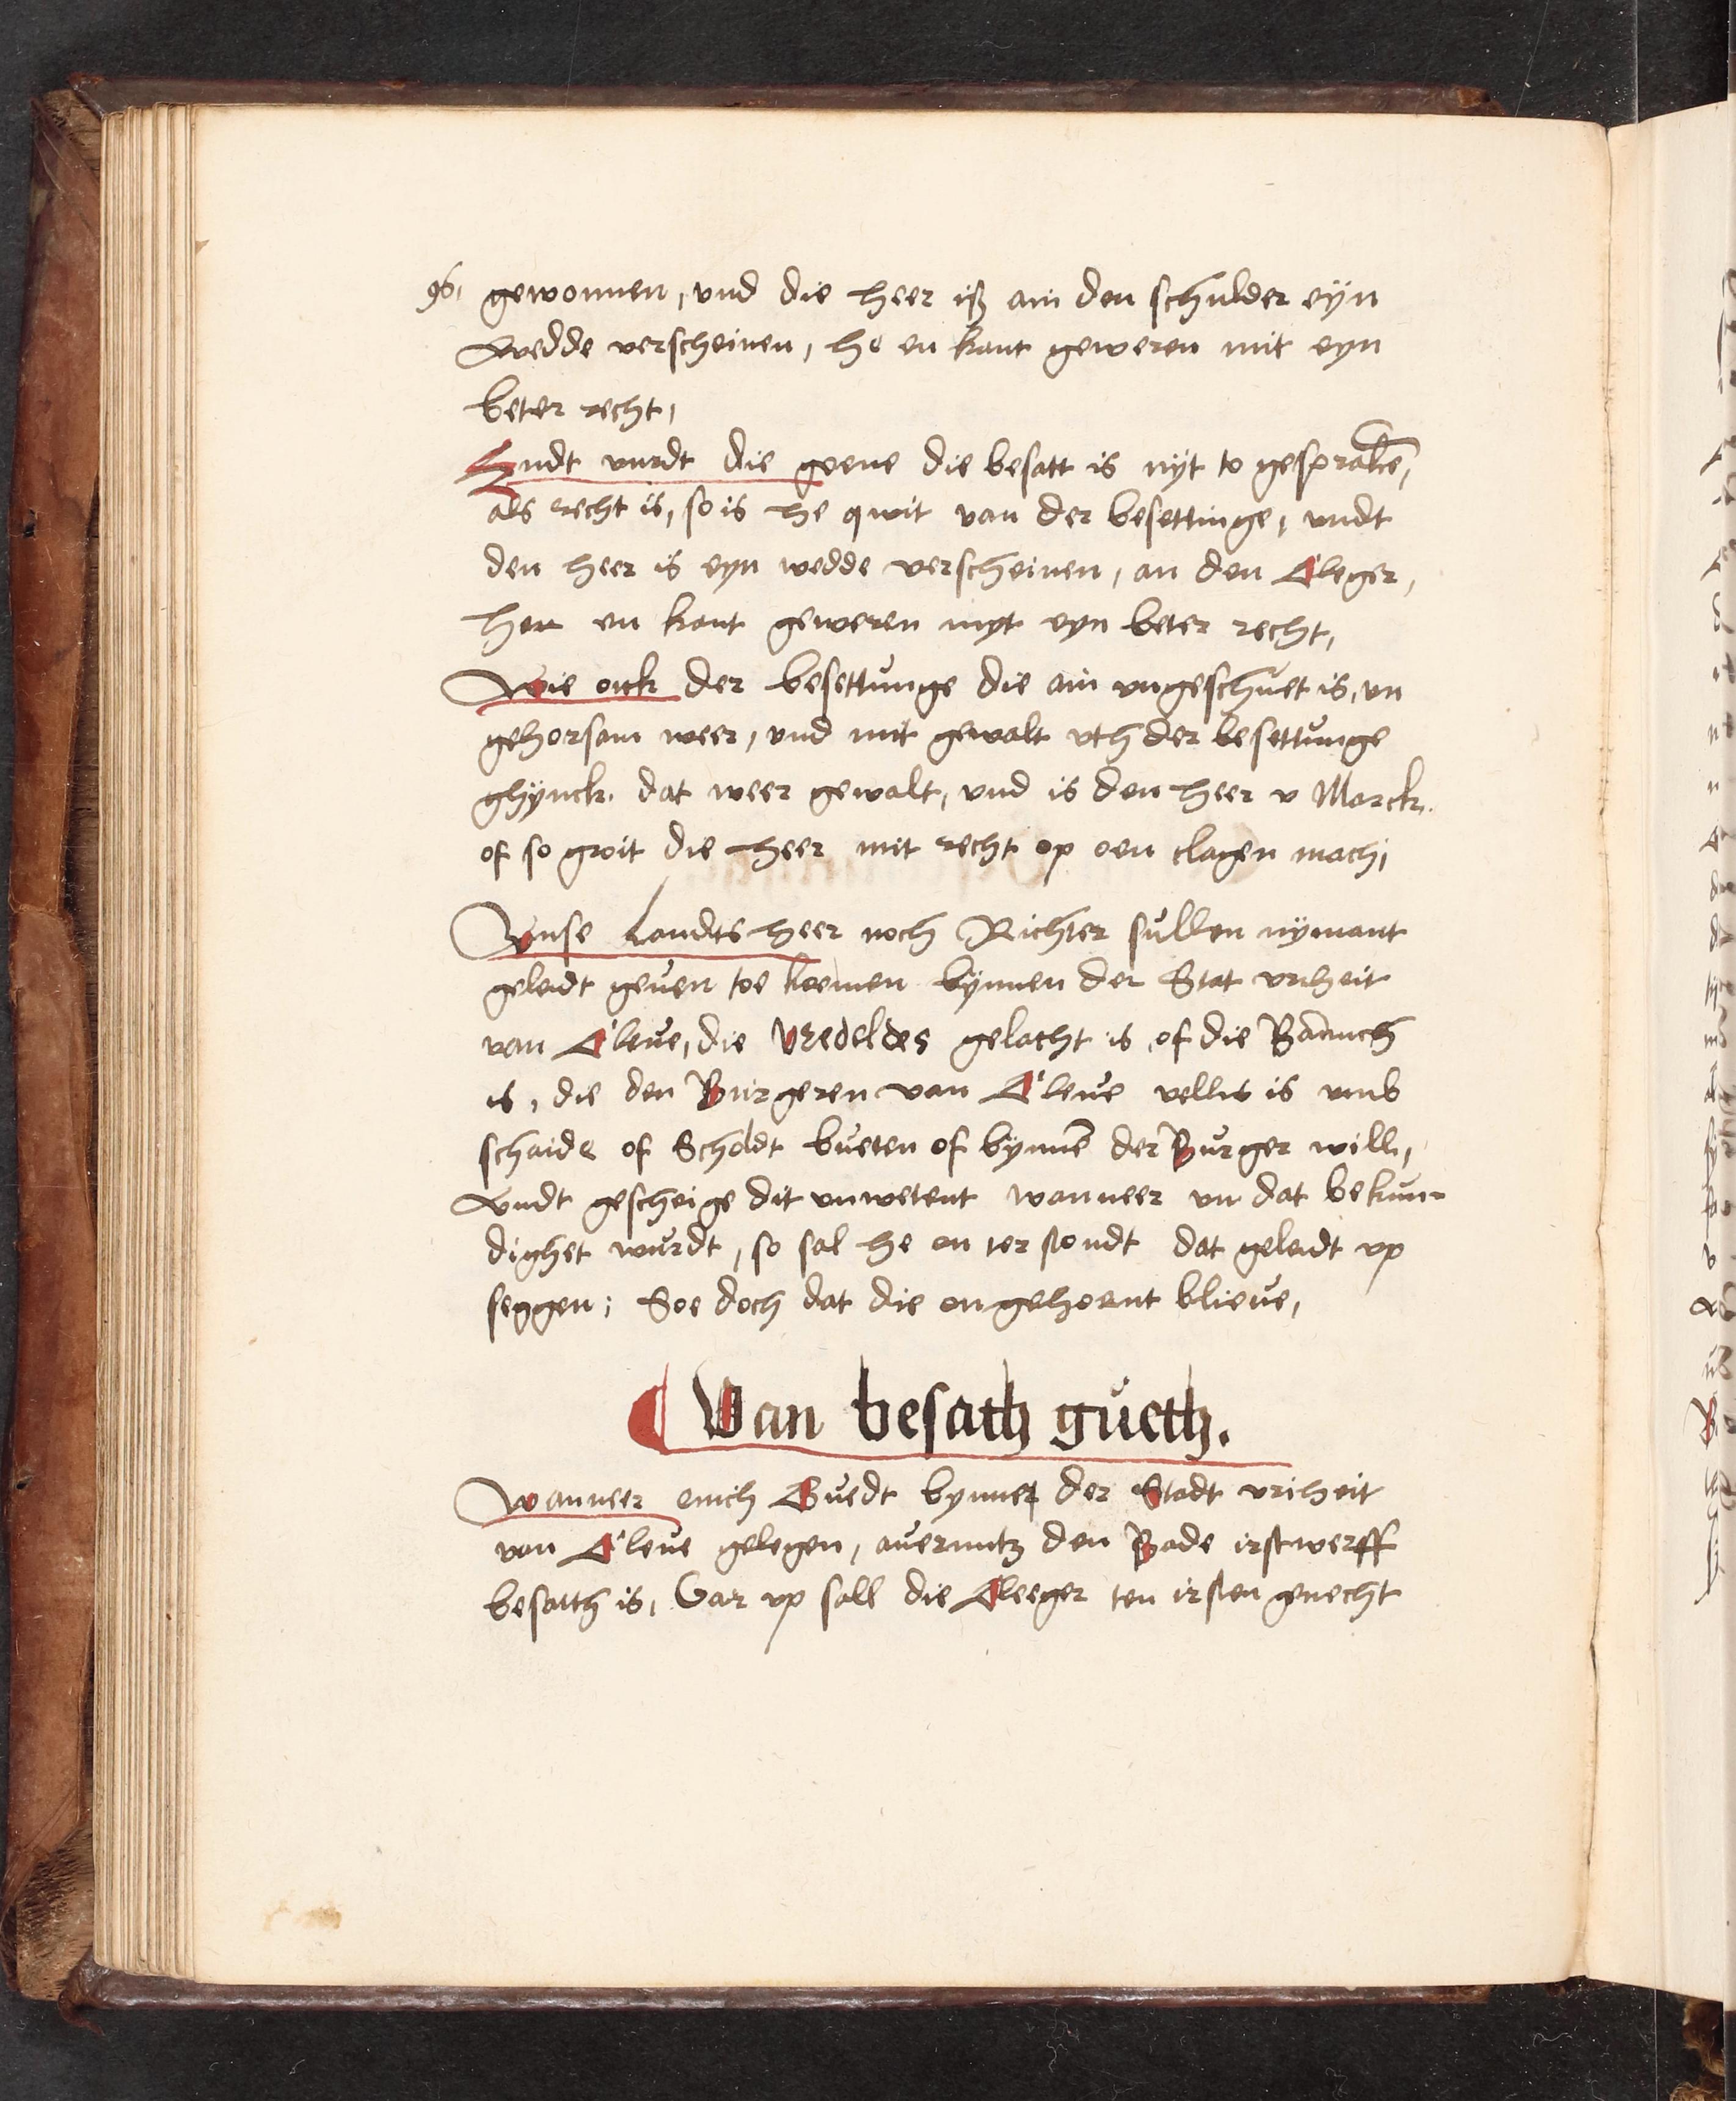 96, gewonnen, vnd die heer iß ain den schulder eyn
Wedde verscheinen, he en kant geweren mit eyn
beter recht,
Endt wurdt die geene die besatt is nyt to gespraken,
als recht is, so is he qwit van der besettinge, vndt
den heer is eyn wedde verscheinen, an den Cleger,
hen en kant geweren myt eyn beter recht,
Wie oick der besettunge die ain vngeschuet is, vn
gehorsam weer, vnd mit gewalt vth der besettunge
ghynck. dat weer gewalt, vnd is den heer v Marck.
of so groit die heer mit recht op oen clagen mach,
Vnse Landts heer noch Richter sullen nymant
geleidt geuen toe koemen bynnen der Stat vriheit
van Cleue, die vredeldes gelacht is, of die
is, die den Burgeren van Cleue vellig is vmb
schaide of Scholdt bueten of bynnen der Burger will,
Vndt gescheige dit vnwetent wanneer vn dat bekun-
dighet wurdt, so sal he en ter stondt dat geleidt vp
seggen; Soe doch dat die ongehoent blieue,
Van besath gueth.
Wanneer enich Guedt bynnen der Stadt vriheit
van Cleue gelegen, auermitz den Bade irstwerff
besatth is, Dar vp sall die Cleeger ten irsten gerecht